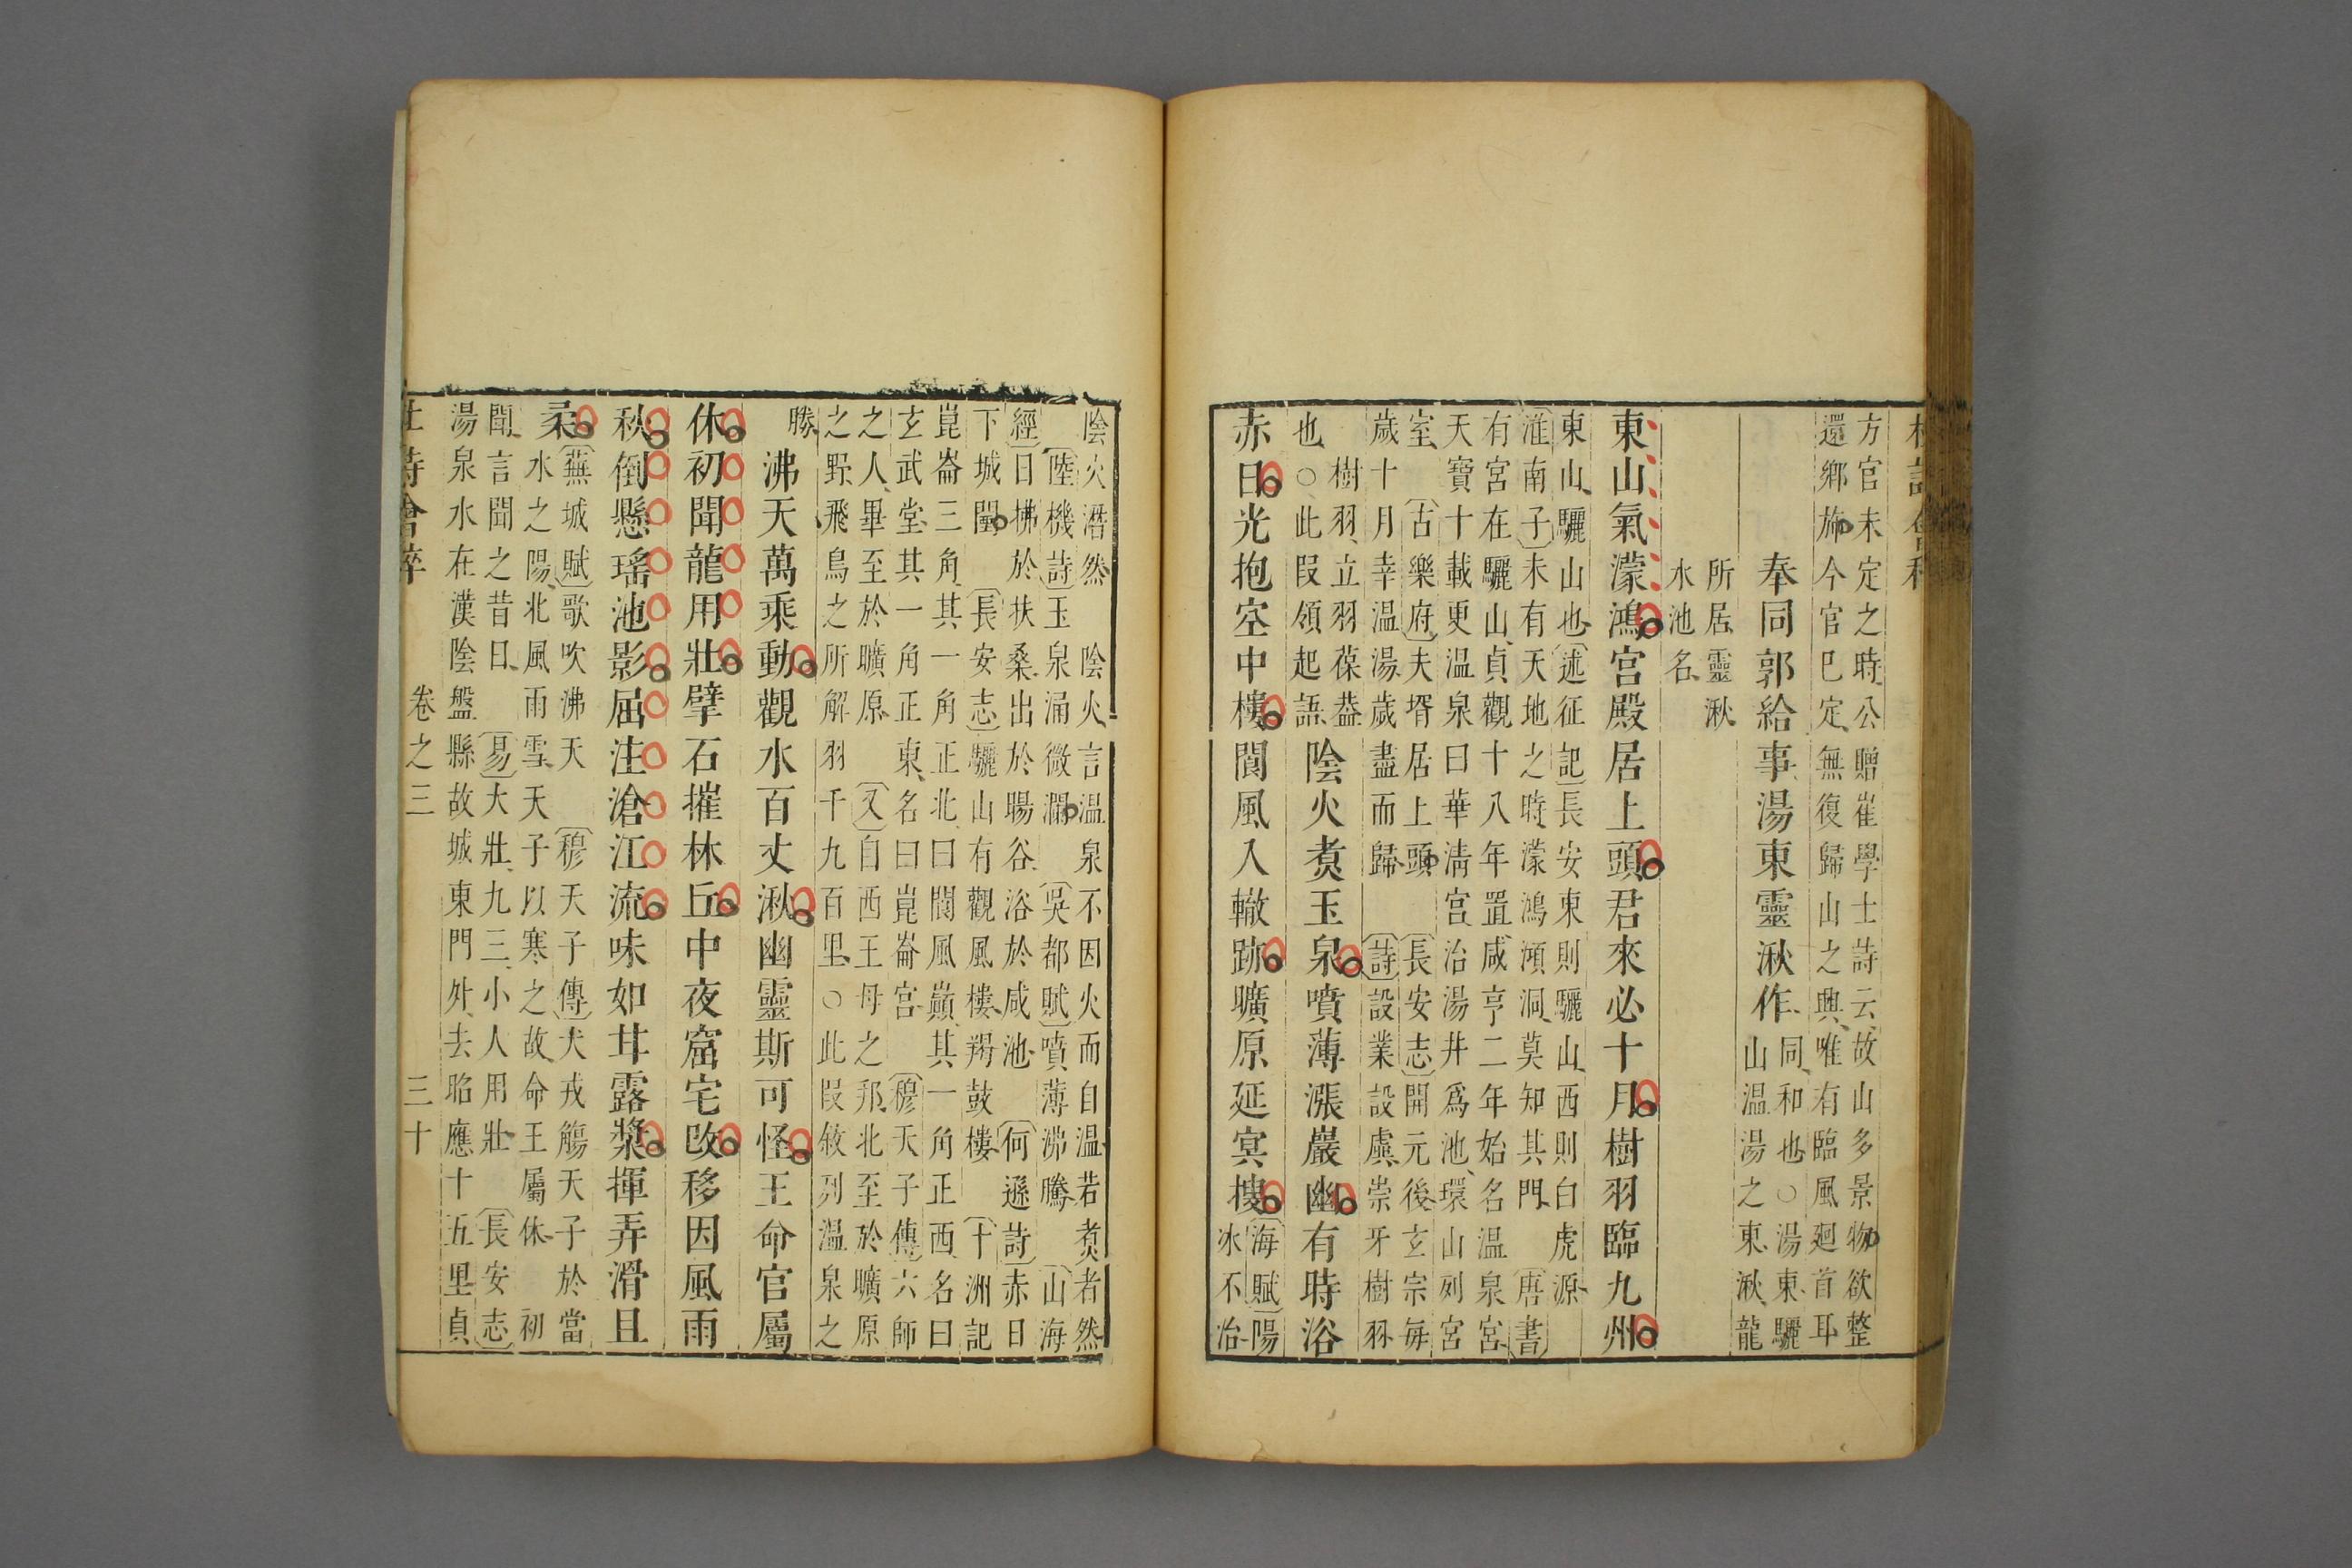 方官未定之時公贈崔學士詩云故山多景物欲整
還鄉旆今官已定無復歸山之興唯有臨風廻首耳
奉同郭給事湯東靈湫作
同和也○湯東驪
山温湯之東湫龍
所居靈湫
水池名
東山氣濛鴻宫殿居上頭君來必十月樹羽臨九州
東山驪山也〔述征記〕長安東則驪山西則白虎源
〔淮南子〕未有天地之時濛鴻澒洞莫知其門〔唐書〕
有宮在驪山貞觀十八年置咸亨二年始名温泉宮
天寶十載更温泉曰華清宮治湯井爲池環山列宮
室〔古樂府〕夫壻居上頭〔長安志〕開元後玄宗每
歲十月幸温湯歲盡而歸〔詩〕設業設虡崇牙樹羽
樹羽立羽葆葢
也○此段領起語
陰火煑玉泉噴薄漲巖幽有時浴
赤日光抱空中樓閬風入轍跡曠原延冥搜
〔海賦〕陽
冰不治
陰火潛然陰火言温泉不因火而自温若煑者然
〔陸機詩〕玉泉涌微瀾〔吳都賦〕噴薄沸騰〔山海
經〕日拂於扶桑出於暘谷浴於咸池〔何遜詩〕赤日
下城闉〔長安志〕驪山有觀風樓羯鼓樓〔十洲記
崑崙三角其一角正北曰閬風巔其一角正西名曰
玄武堂其一角正東名曰崑崙宮〔穆天子傳〕六師
之人畢至於曠原〔又〕自西王母之邦北至於曠原
之野飛鳥之所解羽千九百里○此段敘列温泉之
勝
沸天萬乘動觀水百丈湫幽靈斯可怪王命官屬
休初聞龍用壯擘石摧林丘中夜窟宅改移因風雨
秋倒懸瑤池影屈注滄江流味如甘露漿揮弄滑且
柔
〔蕪城賦〕歌吹沸天〔穆天子傳〕犬戎觴天子於當
水之陽北風雨雪天子以寒之故命王屬休初
聞言聞之昔日〔易〕大壯九三小人用壯〔長安志〕
湯泉水在漢陰盤縣故城東門外去昭應十五里貞
杜詩會稡
卷之三
三十